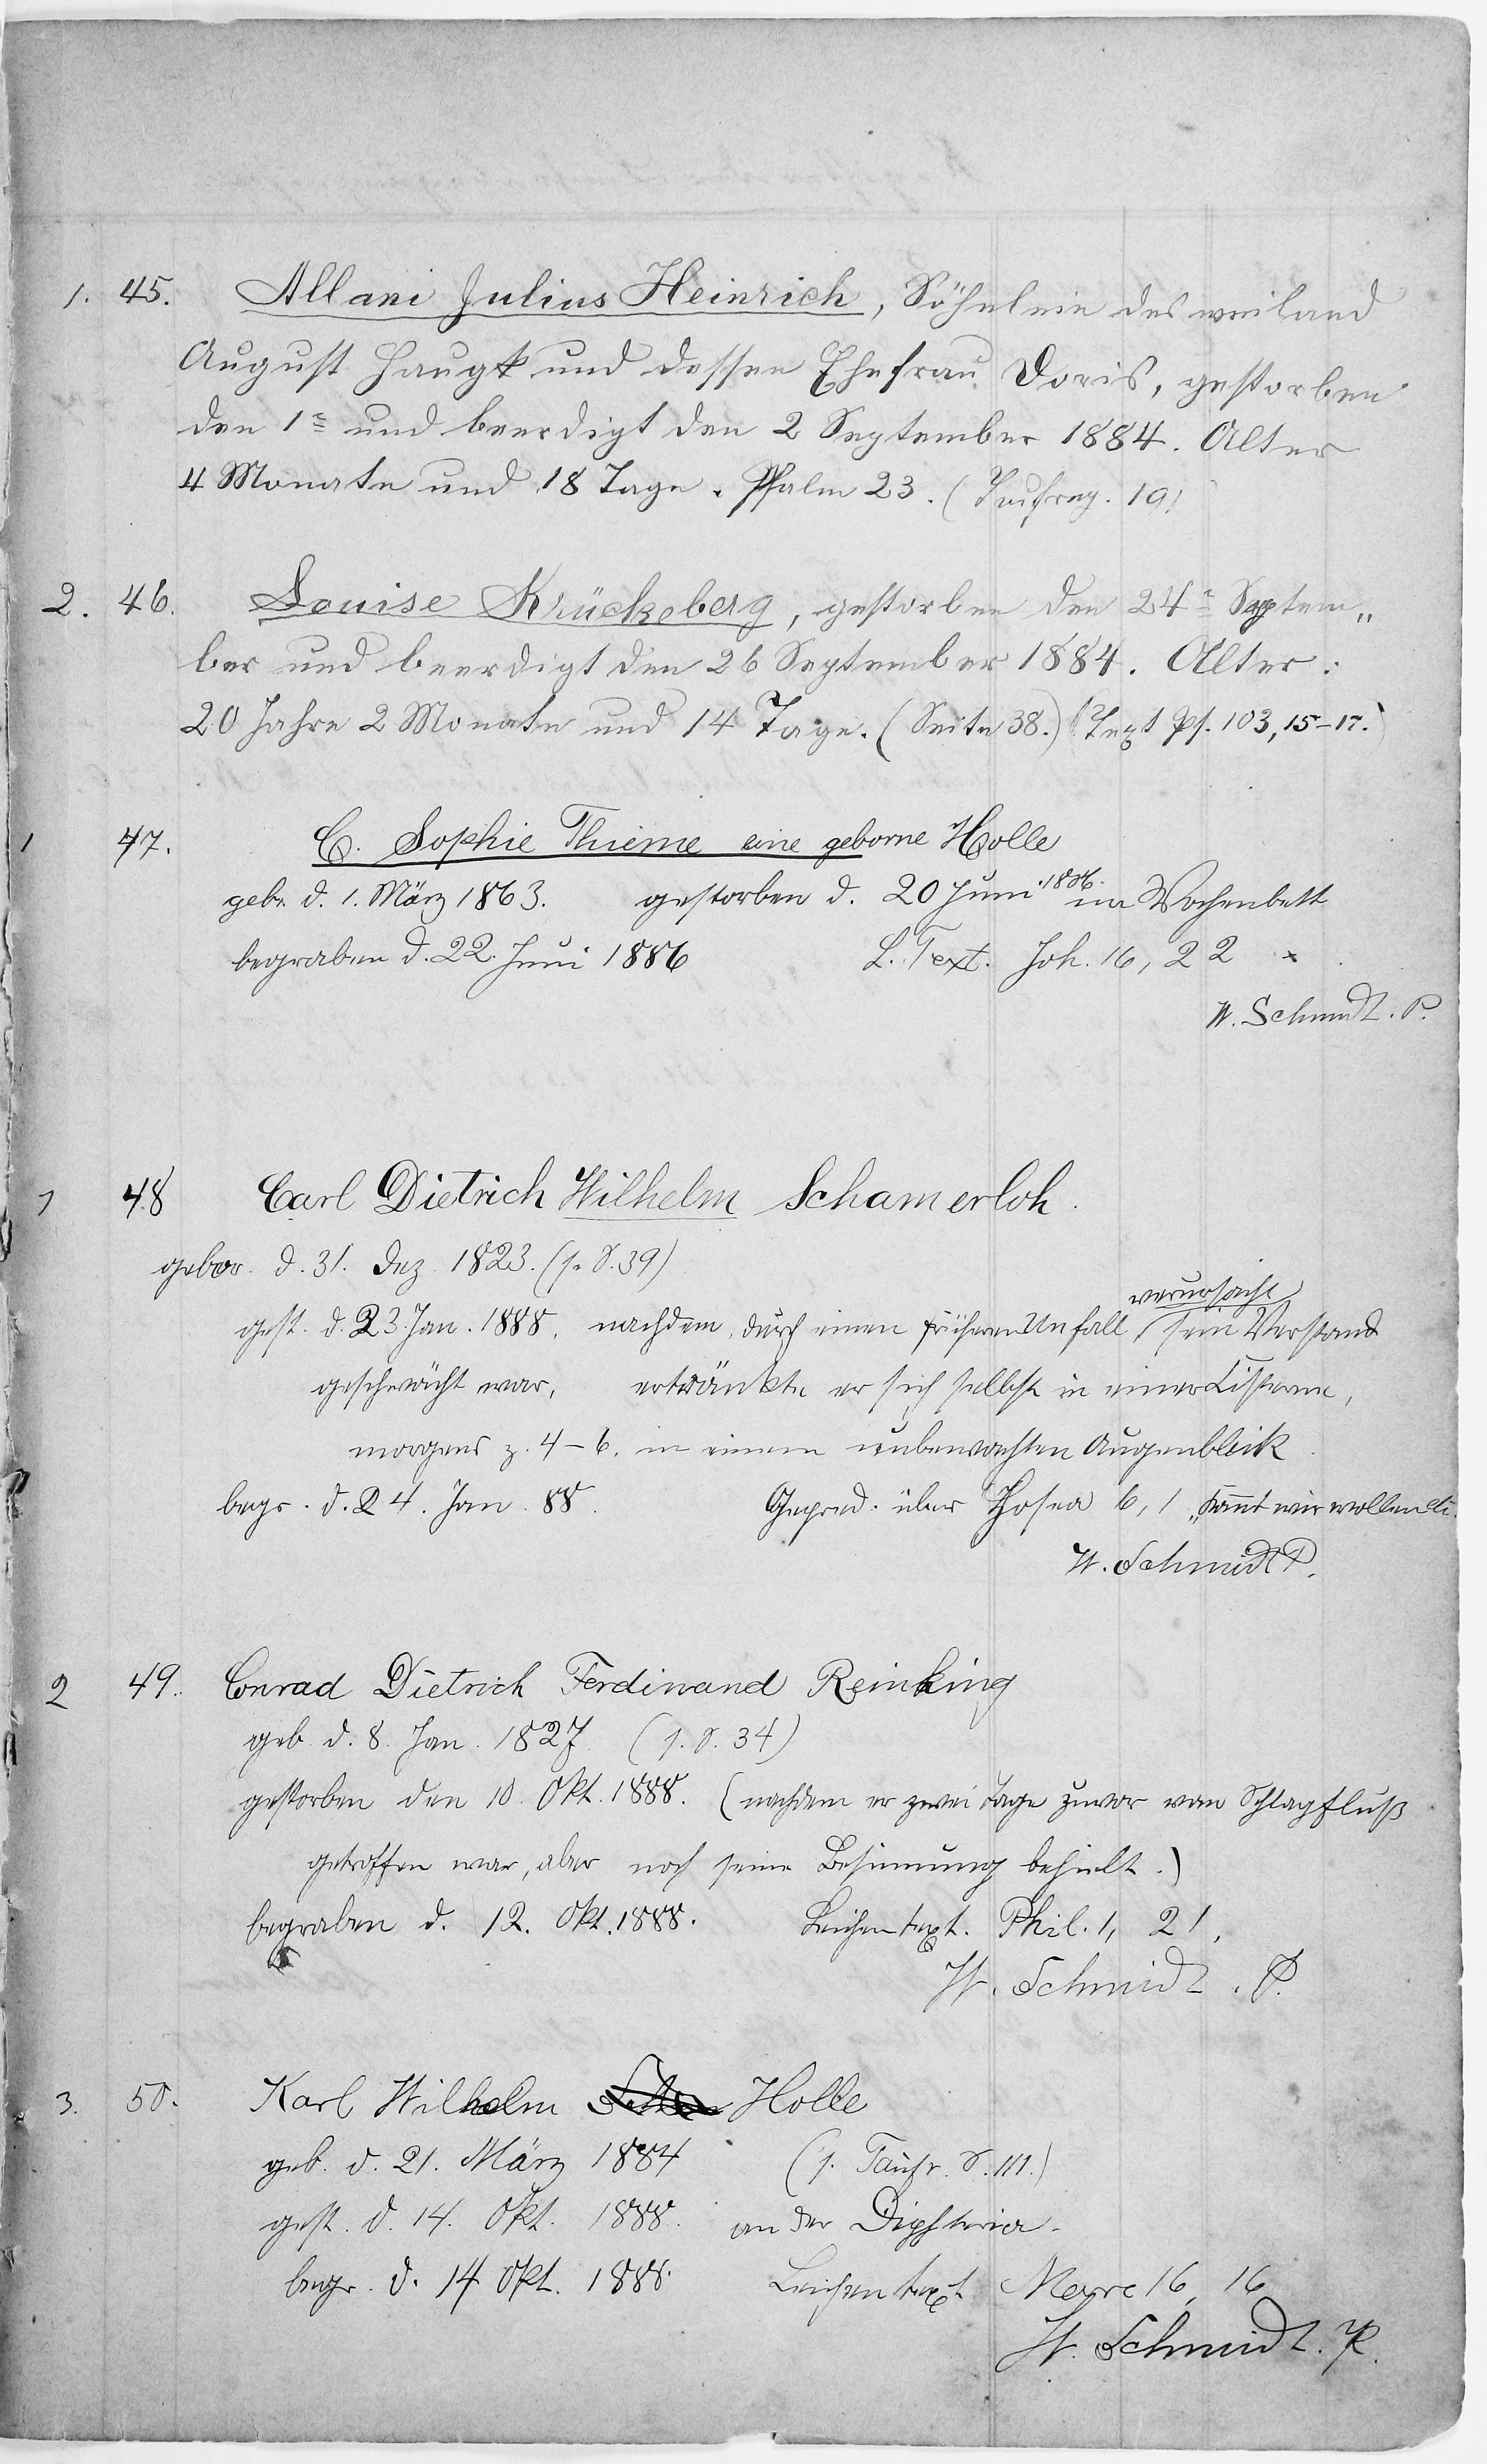 1. 45. Allani Julius Heinrich, Söhnlein des weiland
August Haugk und dessen Ehefrau Doris, gestorben
den 1n und beerdigt den 2 September 1884. Alter
4 Monate und 18 Tage. Psalm 23. (Taufreg. 19)
2. 46. Louise Krückeberg, gestorben den 24n Septem„
ber und beerdigt den 26 September 1884. Alter:
20 Jahre 2 Monate und 14 Tage. (Seite 38.) (Text Ps. 103, 15-17.)
1 47. C. Sophie Thieme eine geborne Holle
geb. d. 1. März 1863. gestorben d. 20 Juni 1886. im Wochenbett
begraben d. 22. Juni 1886 L. Text. Joh. 16, 22
W. Schmidt. P.
1 48 Carl Dietrich Wilhelm Schamerloh.
gebor. d. 31. Dez. 1823. (s. S. 39)
verursacht
gest. d. 23. Jan. 1888, nachdem, durch einen früheren Unfall, sein Verstand
geschwächt war, ertränkte er sich selbst in einer Cisterne,
morgens z. 4-6. in einem unbewachten Augenblick.
begr. d. 24. Jan. 88. Gepred. über Hosea 6, 1 „Kommt wir wollen etc.
W. Schmidt P.
2 49. Conrad Dietrich Ferdinand Reinking
geb. d. 8. Jan. 1827 (s. S. 34)
gestorben den 10. Okt. 1888. (nachdem er zwei Tage zuvor vom Schlagfluß
getroffen war, aber noch seine Besinnung behielt.)
begraben d. 12. Okt. 1888. Leichentext. Phil. 1, 21.
W. Schmidt. P.
3. 50. Karl Wilhelm Holle
geb. d. 21. März 1884 (s. Taufr. S. 111.)
gest. d. 14. Okt. 1888. an der Diphteria.
begr. d. 14 Okt. 1888. Leichentext Marc 16, 16
W. Schmidt. P.